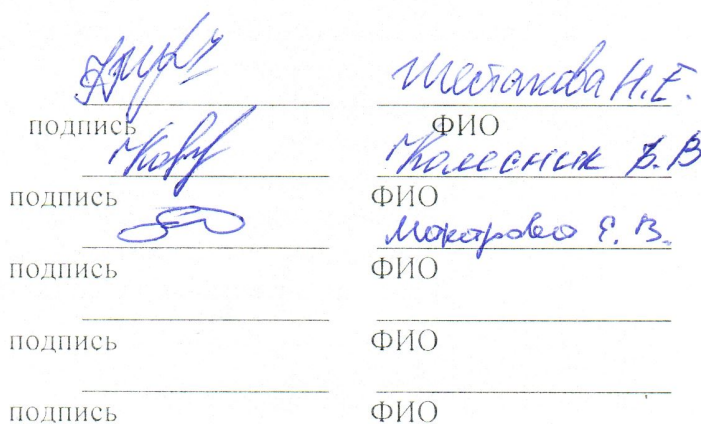 Шестакова Н.Е.
подпись ФИО
Колесник В.В
подпись ФИО
Макарова Е.В.
подпись ФИО
подпись ФИО
подпись ФИО